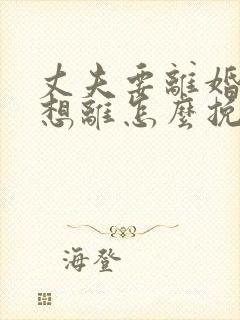 丈夫要離婚
想離怎麼挽
海登